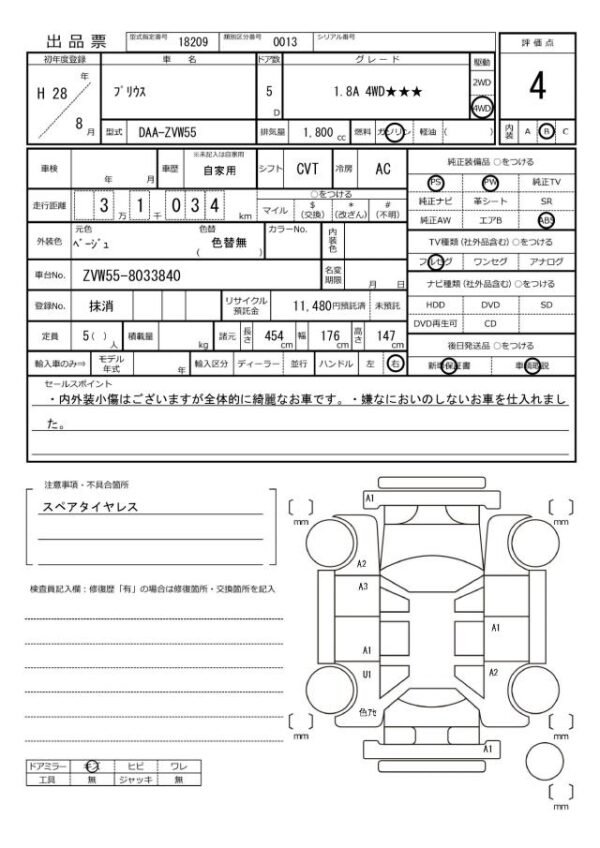 出品票 型式指定番号 18209 類別区分番号 0013 シリアル番号
評価点
初年度登録 車名 ドア数 グレード 駆動
H 28 年 8 月 プリウス 5 D 1.8A 4WD★★★ 2WD 4WD 4
型式 DAA-ZVW55 排気量 1,800 cc 燃料 ガソリン 軽油 ( ) 内装 A B C
車検 年 月 車歴 ※未記入は自家用 自家用 シフト CVT 冷房 AC
走行距離 3 万 1 千 0 3 4 km ○をつける
マイル $ (交換) * (改ざん) # (不明)
外装色 元色 ベージュ 色替 色替無 ( ) カラーNo. 内装色
車台No. ZVW55-8033840 名変期限 月 日
登録No. 抹消 リサイクル預託金 11,480円預託済 未預託
定員 5( ) 人 積載量 kg 諸元 長さ 454 cm 幅 176 cm 高さ 147 cm
輸入車のみ⇒ モデル年式 年 輸入区分 ディーラー 並行 ハンドル 左 右
純正装備品 ○をつける
PS PW 純正TV
純正ナビ 革シート SR
純正AW エアB ABS
TV種類 (社外品含む) ○をつける
フルセグ ワンセグ アナログ
ナビ種類 (社外品含む) ○をつける
HDD DVD SD
DVD再生可 CD
後日発送品 ○をつける
新車保証書 車輌取説
セールスポイント
・内外装小傷はございますが全体的に綺麗なお車です。・嫌なにおいのしないお車を仕入れまし
た。
注意事項・不具合箇所
スペアタイヤレス
検査員記入欄：修復歴「有」の場合は修復箇所・交換箇所を記入
A1
〔 〕 mm 〔 〕 mm
A2
A3
A1 A1
U1 A2
色アセ
〔 〕 mm 〔 〕 mm
A1
〔 〕 mm
ドアミラー キズ ヒビ ワレ
工具 無 ジャッキ 無